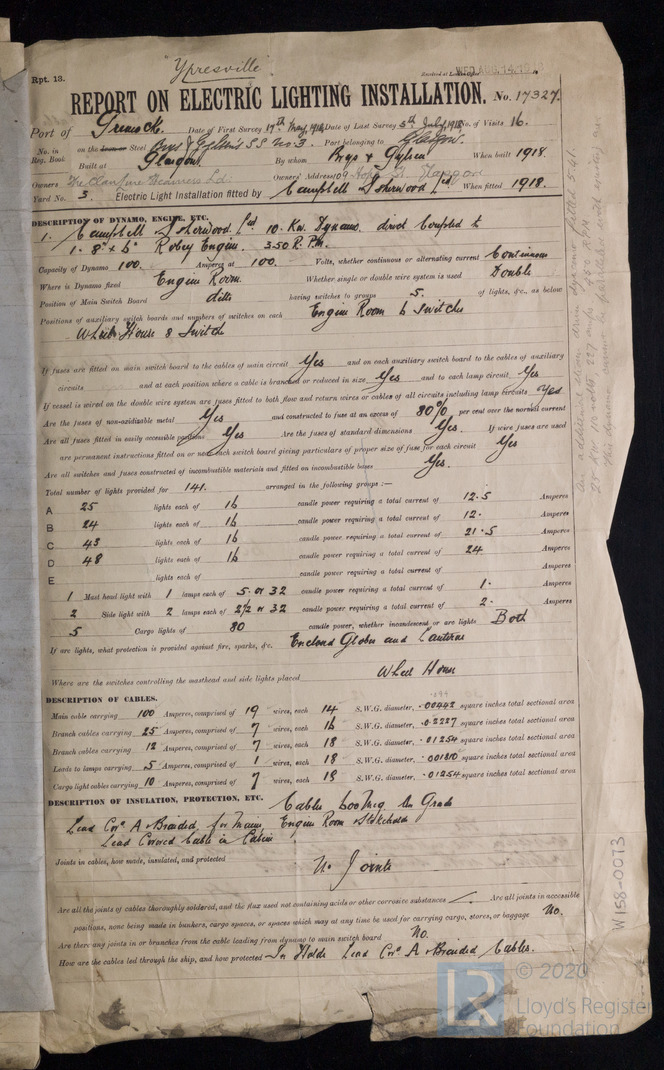 Rpt. 13.
"Ypresville"
WED. AUG. 14. 1918
REPORT ON ELECTRIC LIGHTING INSTALLATION. No. 17327.
Port of Greenock. Date of First Survey 17th May, 1918 Date of Last Survey 5th July, 1918 No. of Visits 16.
No. in Reg. Book on the Steel SS No 3. Port belonging to Glasgow.
Built at Glasgow. By whom When built 1918.
Owners Owners' Address 109 Hope St. Glasgow
Yard No. 3. Electric Light Installation fitted by Campbell & Isherwood Ltd When fitted 1918.
DESCRIPTION OF DYNAMO, ENGINE, ETC.
1. Campbell & Isherwood Ltd 10. Kw. Dynamo. direct Coupled to
1. 8" + 6" Robey Engine. 350 R.P.M.
Capacity of Dynamo 100. Amperes at 100. Volts, whether continuous or alternating current Continuous
Where is Dynamo fixed Engine Room. Whether single or double wire system is used Double
Position of Main Switch Board ditto having switches to groups 5. of lights, &c., as below
Positions of auxiliary switch boards and numbers of switches on each Engine Room 6 Switches
Wheel House 8 Switch
If fuses are fitted on main switch board to the cables of main circuit Yes and on each auxiliary switch board to the cables of auxiliary
circuits and at each position where a cable is branched or reduced in size Yes and to each lamp circuit Yes
If vessel is wired on the double wire system are fuses fitted to both flow and return wires or cables of all circuits including lamp circuits Yes
Are the fuses of non-oxidizable metal Yes and constructed to fuse at an excess of 80% per cent over the normal current
Are all fuses fitted in easily accessible positions Yes Are the fuses of standard dimensions Yes. If wire fuses are used
are permanent instructions fitted on or near each switch board giving particulars of proper size of fuse for each circuit Yes
Are all switches and fuses constructed of incombustible materials and fitted on incombustible bases Yes.
Total number of lights provided for 141. arranged in the following groups :—
A 25 lights each of 16 candle power requiring a total current of 12.5 Amperes
B 24 lights each of 16 candle power requiring a total current of 12. Amperes
C 43 lights each of 16 candle power requiring a total current of 21.5 Amperes
D 48 lights each of 16 candle power requiring a total current of 24 Amperes
E lights each of candle power requiring a total current of Amperes
1 Mast head light with 1 lamps each of 5. or 32 candle power requiring a total current of 1. Amperes
2 Side light with 2 lamps each of 2½ or 32 candle power requiring a total current of 2. Amperes
5 Cargo lights of 80 candle power, whether incandescent or arc lights Both
If arc lights, what protection is provided against fire, sparks, &c. Enclosed Globes and Lanterns
Where are the switches controlling the masthead and side lights placed Wheel House
DESCRIPTION OF CABLES.
Main cable carrying 100 Amperes, comprised of 19 wires, each 14 S.W.G. diameter, .00442 square inches total sectional area
Branch cables carrying 25 Amperes, comprised of 7 wires, each 16 S.W.G. diameter, .02227 square inches total sectional area
Branch cables carrying 12 Amperes, comprised of 7 wires, each 18 S.W.G. diameter, .01254 square inches total sectional area
Leads to lamps carrying 5 Amperes, comprised of 1 wires, each 18 S.W.G. diameter, .001810 square inches total sectional area
Cargo light cables carrying 10 Amperes, comprised of 7 wires, each 18 S.W.G. diameter, .01254 square inches total sectional area
DESCRIPTION OF INSULATION, PROTECTION, ETC. Cables 600 Meg Grade
Lead Cov'd A & Braided, for Mains Engine Room & Stokehold
Lead Covered Cable in Cabins
Joints in cables, how made, insulated, and protected No Joints
Are all the joints of cables thoroughly soldered, and the flux used not containing acids or other corrosive substances Are all joints in accessible
positions, none being made in bunkers, cargo spaces, or spaces which may at any time be used for carrying cargo, stores, or baggage No.
Are there any joints in or branches from the cable leading from dynamo to main switch board No.
How are the cables led through the ship, and how protected In Holds Lead Cov'd A & Braided Cables.
W158-0073
LR
© 2020
Lloyd's Register
Foundation